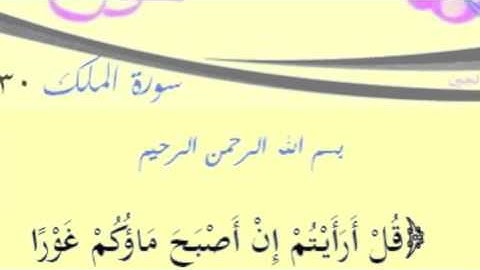 سورة الملك ٣٠
بسم الله الرحمن الرحيم
﴿قُلْ أَرَأَيْتُمْ إِنْ أَصْبَحَ مَاؤُكُمْ غَوْرًا